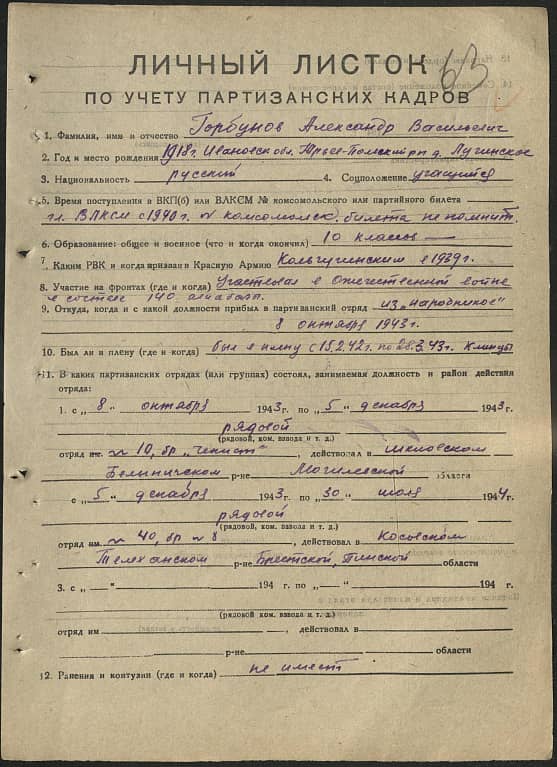 63
ЛИЧНЫЙ ЛИСТОК
ПО УЧЕТУ ПАРТИЗАНСКИХ КАДРОВ
1. Фамилия, имя и отчество Горбунов Александр Васильевич
2. Год и место рождения 1918 г. Ивановск обл. р-н д.
3. Национальность русский 4. Соцположение учащийся
5. Время поступления в ВКП(б) или ВЛКСМ № комсомольского или партийного билета
чл. ВЛКСМ с 1940 г. № комсомольск. билета не помнит.
6. Образование: общее и военное (что и когда окончил) 10 классов
7. Каким РВК и когда призван в Красную Армию Кольчугинским в 1939 г.
8. Участие на фронтах (где и когда) Участвовал в Отечественной войне
в составе 140
9. Откуда, когда и с какой должности прибыл в партизанский отряд из „народников"
8 октября 1943 г.
10. Был ли в плену (где и когда) был в плену с 15.2.42 г. по 28.3.43 г. Клинцы
11. В каких партизанских отрядах (или группах) состоял, занимаемая должность и район действия
отряда:
1. с „8" октября 1943 г. по „5" декабря 1943 г.
рядовой
(рядовой, ком. взвода и т. д.)
отряд им. № 10, бр „Чекист", действовал в Шкловском
Белыничском р-не Могилевской области
с „5" декабря 1943 г. по „30" июля 1944 г.
рядовой
(рядовой, ком. взвода и т. д.)
отряд им. № 40, бр № 8, действовал в Косовском
Телеханском р-не Брестской, Пинской области
3. с „ " 194 г. по „ " 194 г.
(рядовой, ком. взвода и т. д.)
отряд им , действовал в
р-не области
12. Ранения и контузии (где и когда) не имеет